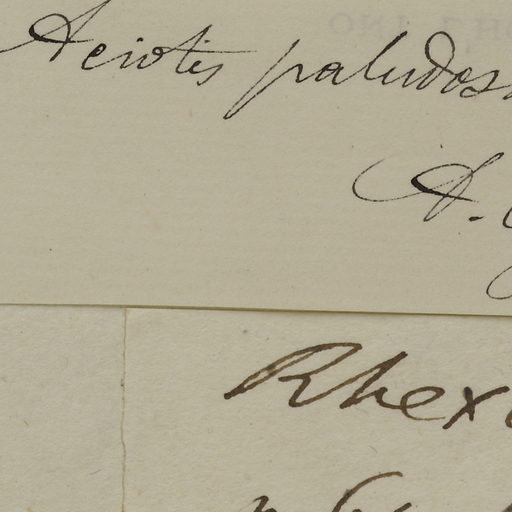 Aciotis paludos
A.
Rhex